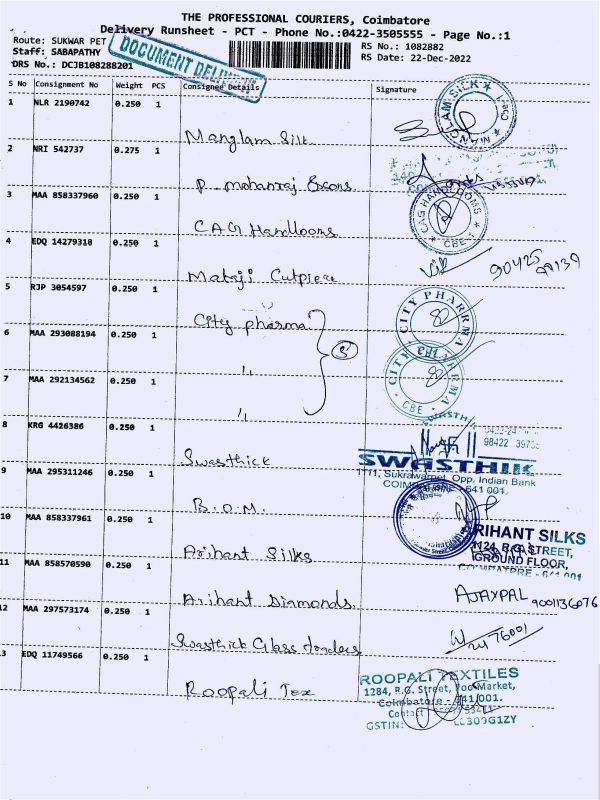 THE PROFESSIONAL COURIERS, Coimbatore
Delivery Runsheet - PCT - Phone No.:0422-3505555 - Page No.:1
Route: SUKWAR PET
RS No.: 1082882
Staff: SABAPATHY
RS Date: 22-Dec-2022
DRS No.: DCJB108288201
DOCUMENT DELIVERY
S No Consignment No Weight PCS Consignee Details Signature
1 NLR 2190742 0.250 1
Manglam Silk
MANGLAM SILK
2 NRI 542737 0.275 1
P. mohanraj
3 MAA 858337960 0.250 1
CAG Handlooms
CAG HANDLOOMS
CBE
4 EDQ 14279318 0.250 1
Mataji Cutpiece
90425
5 RJP 3054597 0.250 1
City pharma
CITY PHARMA
3
6 MAA 293088194 0.250 1
"
CITY PHARMA
CBE
7 MAA 292134562 0.250 1
"
8 KRG 4426386 0.250 1
Swasthick
98422
SWASTHIK
Sukrawarpet, Opp. Indian Bank
641 001.
9 MAA 295311246 0.250 1
B.O.M.
10 MAA 858337961 0.250 1
Arihant Silks
ARIHANT SILKS
1124, R.G. STREET,
GROUND FLOOR,
COIMBATORE - 641 001
11 MAA 858570590 0.250 1
Arihant Diamonds
AJAYPAL 9001136076
12 MAA 297573174 0.250 1
Swasthick Glass
13 EDQ 11749566 0.250 1
Roopali Tex
ROOPALI TEXTILES
1284, R.G. Street, Poo Market,
Coimbatore - 641 001.
GSTIN: